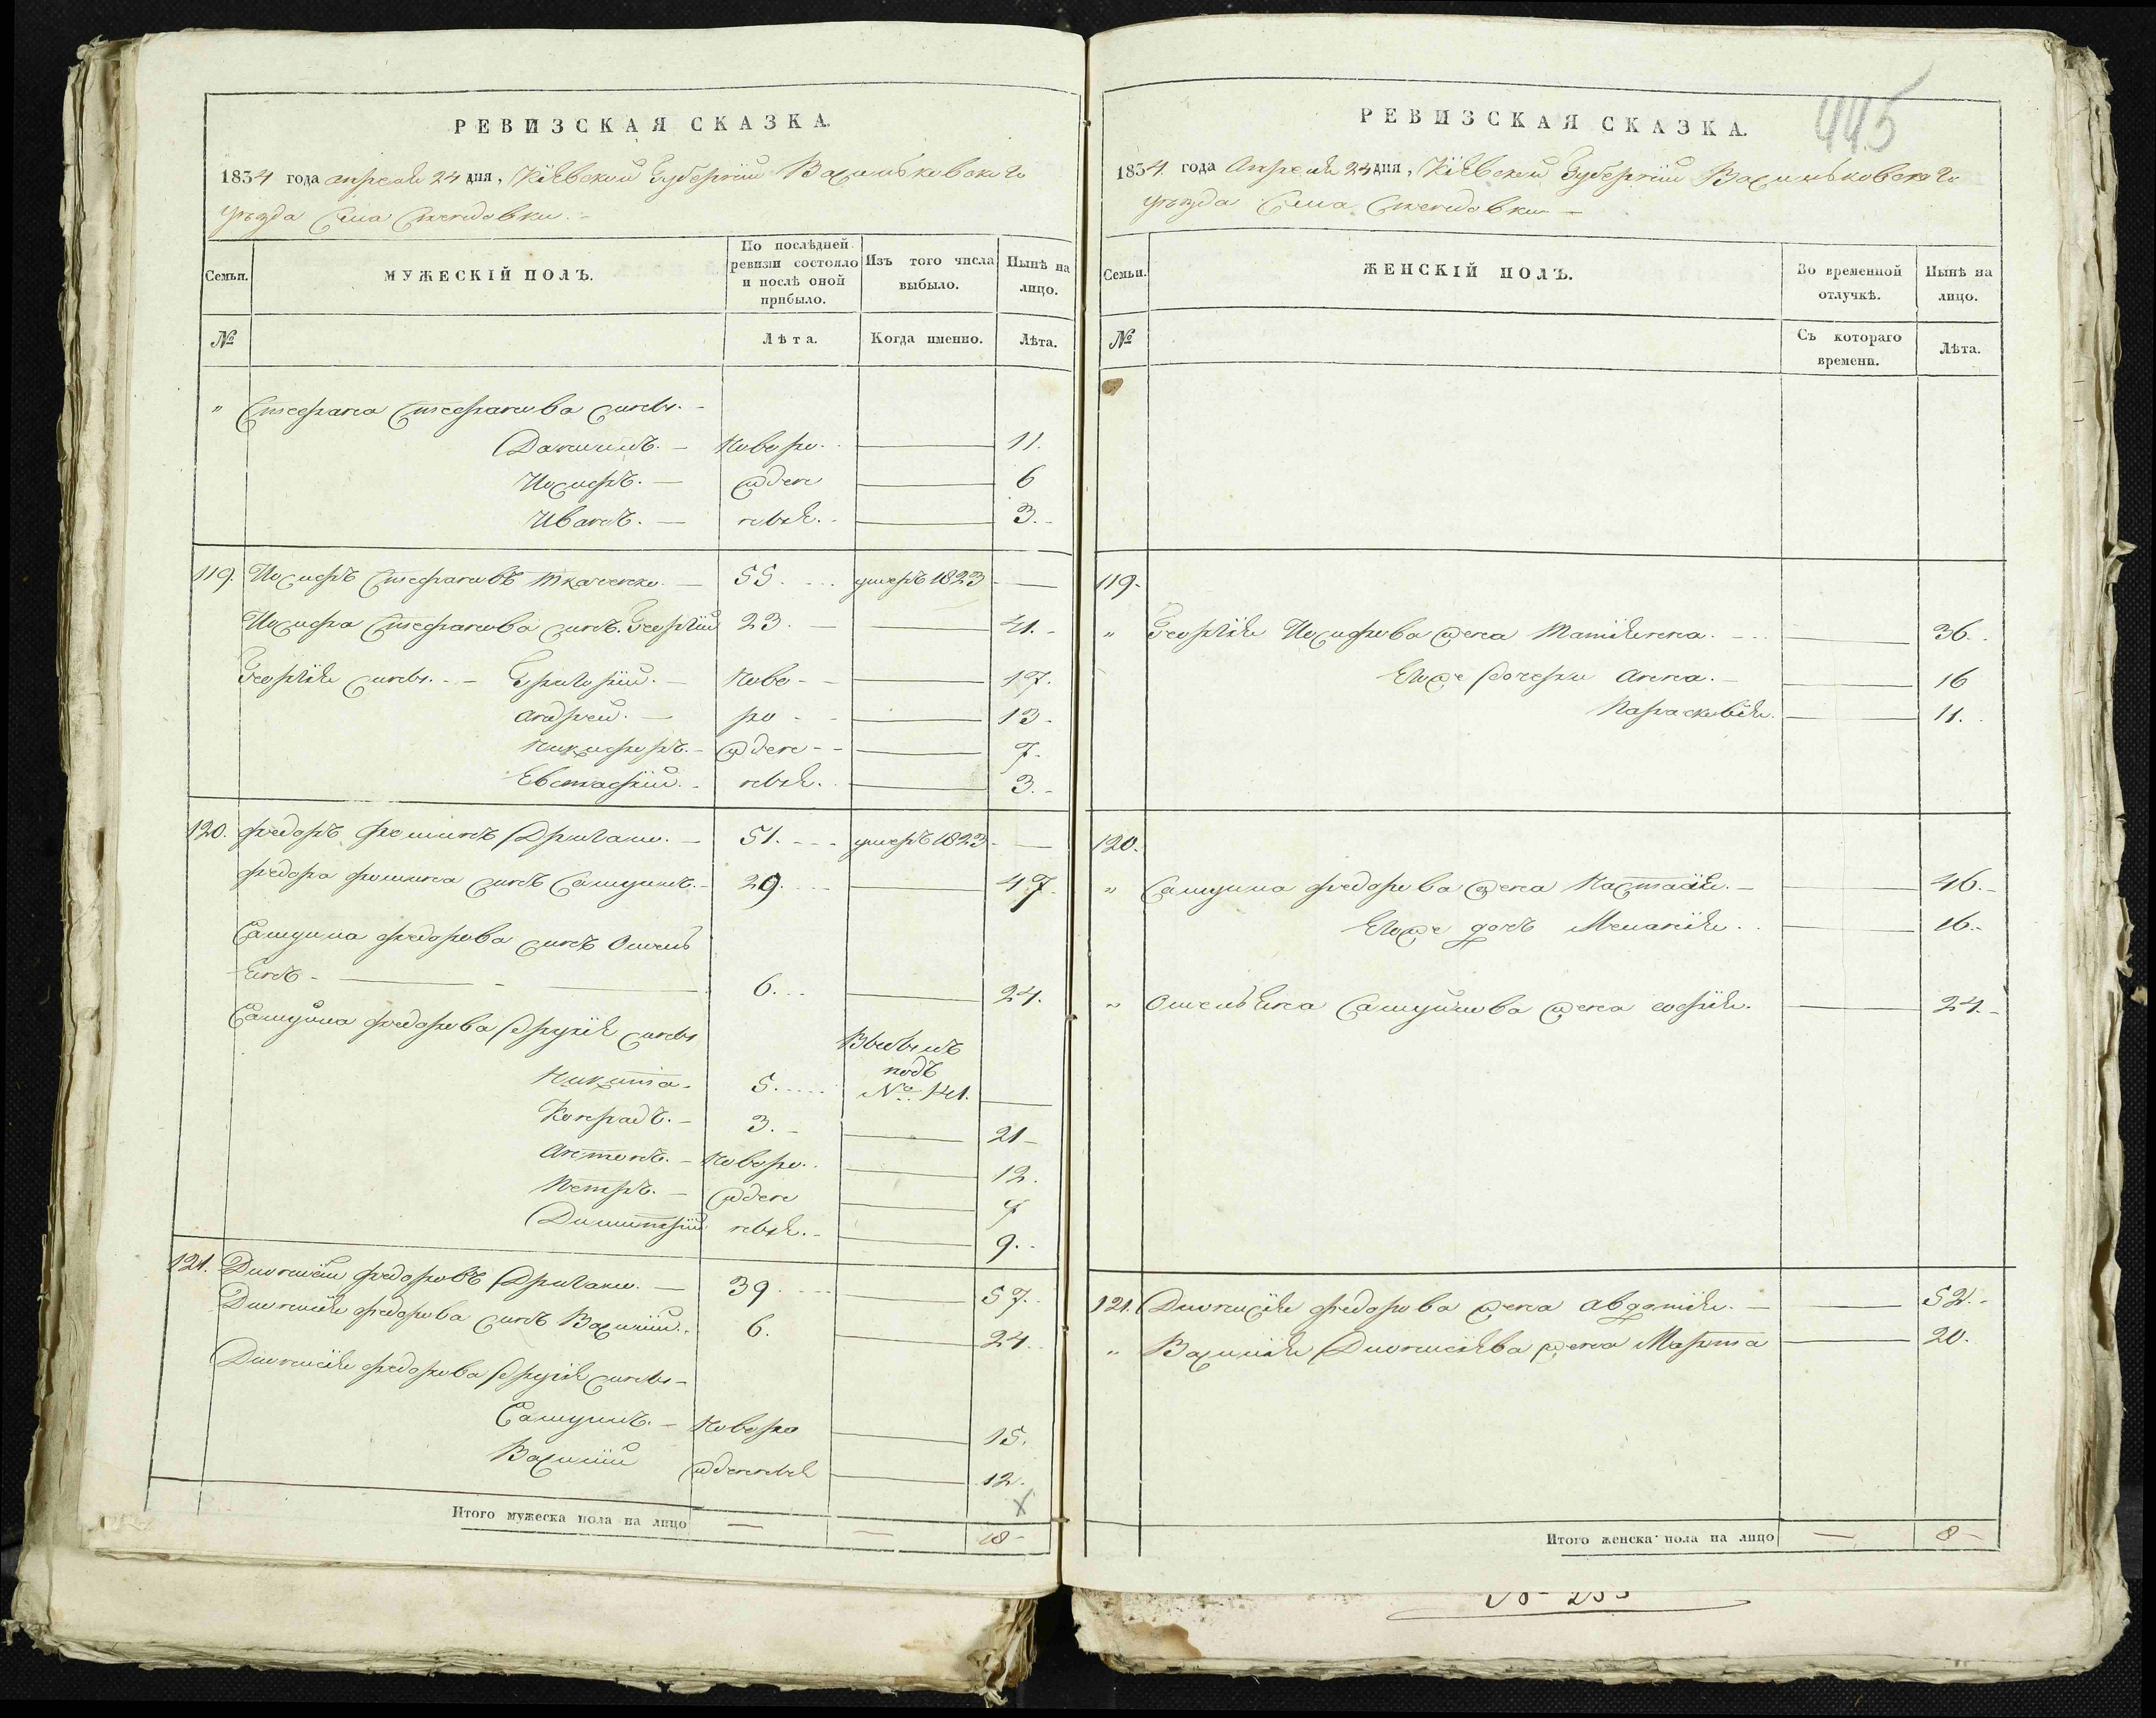 РЕВИЗСКАЯ СКАЗКА.
1834 года апреля 24 дня, Кіевской Губерніи Васильковского
уѣзда Села
Семьи. МУЖЕСКІЙ ПОЛЪ. По послѣдней ревизіи состояло и послѣ оной прибыло. Изъ того числа выбыло. Нынѣ на лицо.
№ Лѣта. Когда именно. Лѣта.
" Стефана Стефанова сыны. -
Даниилъ. - Новоро- — 11.
Иосифъ. - жден — 6
Иванъ. - ныя. — 3.-
119. Иосифъ Стефановъ Ткаченко. - 55. умеръ 1823 —
Иосифа Стефанова сынъ Георгій 23. — 41.-
Георгія сыны. - - Григорій. - Ново- — 17.
Андрей. - ро- — 13-
Никифоръ. - жден- — 7-
Евстафій. - ныя. — 3.-
120. Федоръ Фоминъ Дригало. - 51. умеръ 1823 —
Федора Фомина сынъ Самуилъ. - 29. — 47.
Самуила Федорова сынъ Омель
янъ - — 6. — 24.
Самуила Федорова другія сыны
Выбылъ
подъ
Никита. 5. № 141. —
Конрадъ. - 3. - — 21-
Антонъ. - Новоро. — 12.
Петръ. - жден — 7
Димитрій ныя. — 9.-
121. Дионисій Федоровъ Дригало. - 39 — 57.
Дионисія Федорова сынъ Василій. 6. — 24.
Дионисія Федорова другія сыны -
Самуилъ. - Новоро — 15.
Василій жденныя — 12.
Итого мужеска пола на лицо — — 18-
445
РЕВИЗСКАЯ СКАЗКА.
1834 года Апреля 24 дня, Кіевской Губерніи Васильковского
уѣзда Села
Семьи. ЖЕНСКІЙ ПОЛЪ. Во временной отлучкѣ. Нынѣ на лицо.
№ Съ котораго времени. Лѣта.
119.
" Георгія Иосифова жена Татіянна. - — 36.
Егоже дочери Анна. - — 16
Параскевія. — 11.
120.
" Самуила Федорова жена Настасія. - — 46.-
Егоже дочь Меланія. — 16.-
" Омельяна Самуйлова жена Софія. — 24.-
121. Дионисія Федорова жена Авдотія. - — 52.-
" Василія Дионисіева жена Марта — 20.
Итого женска пола на лицо — 8-